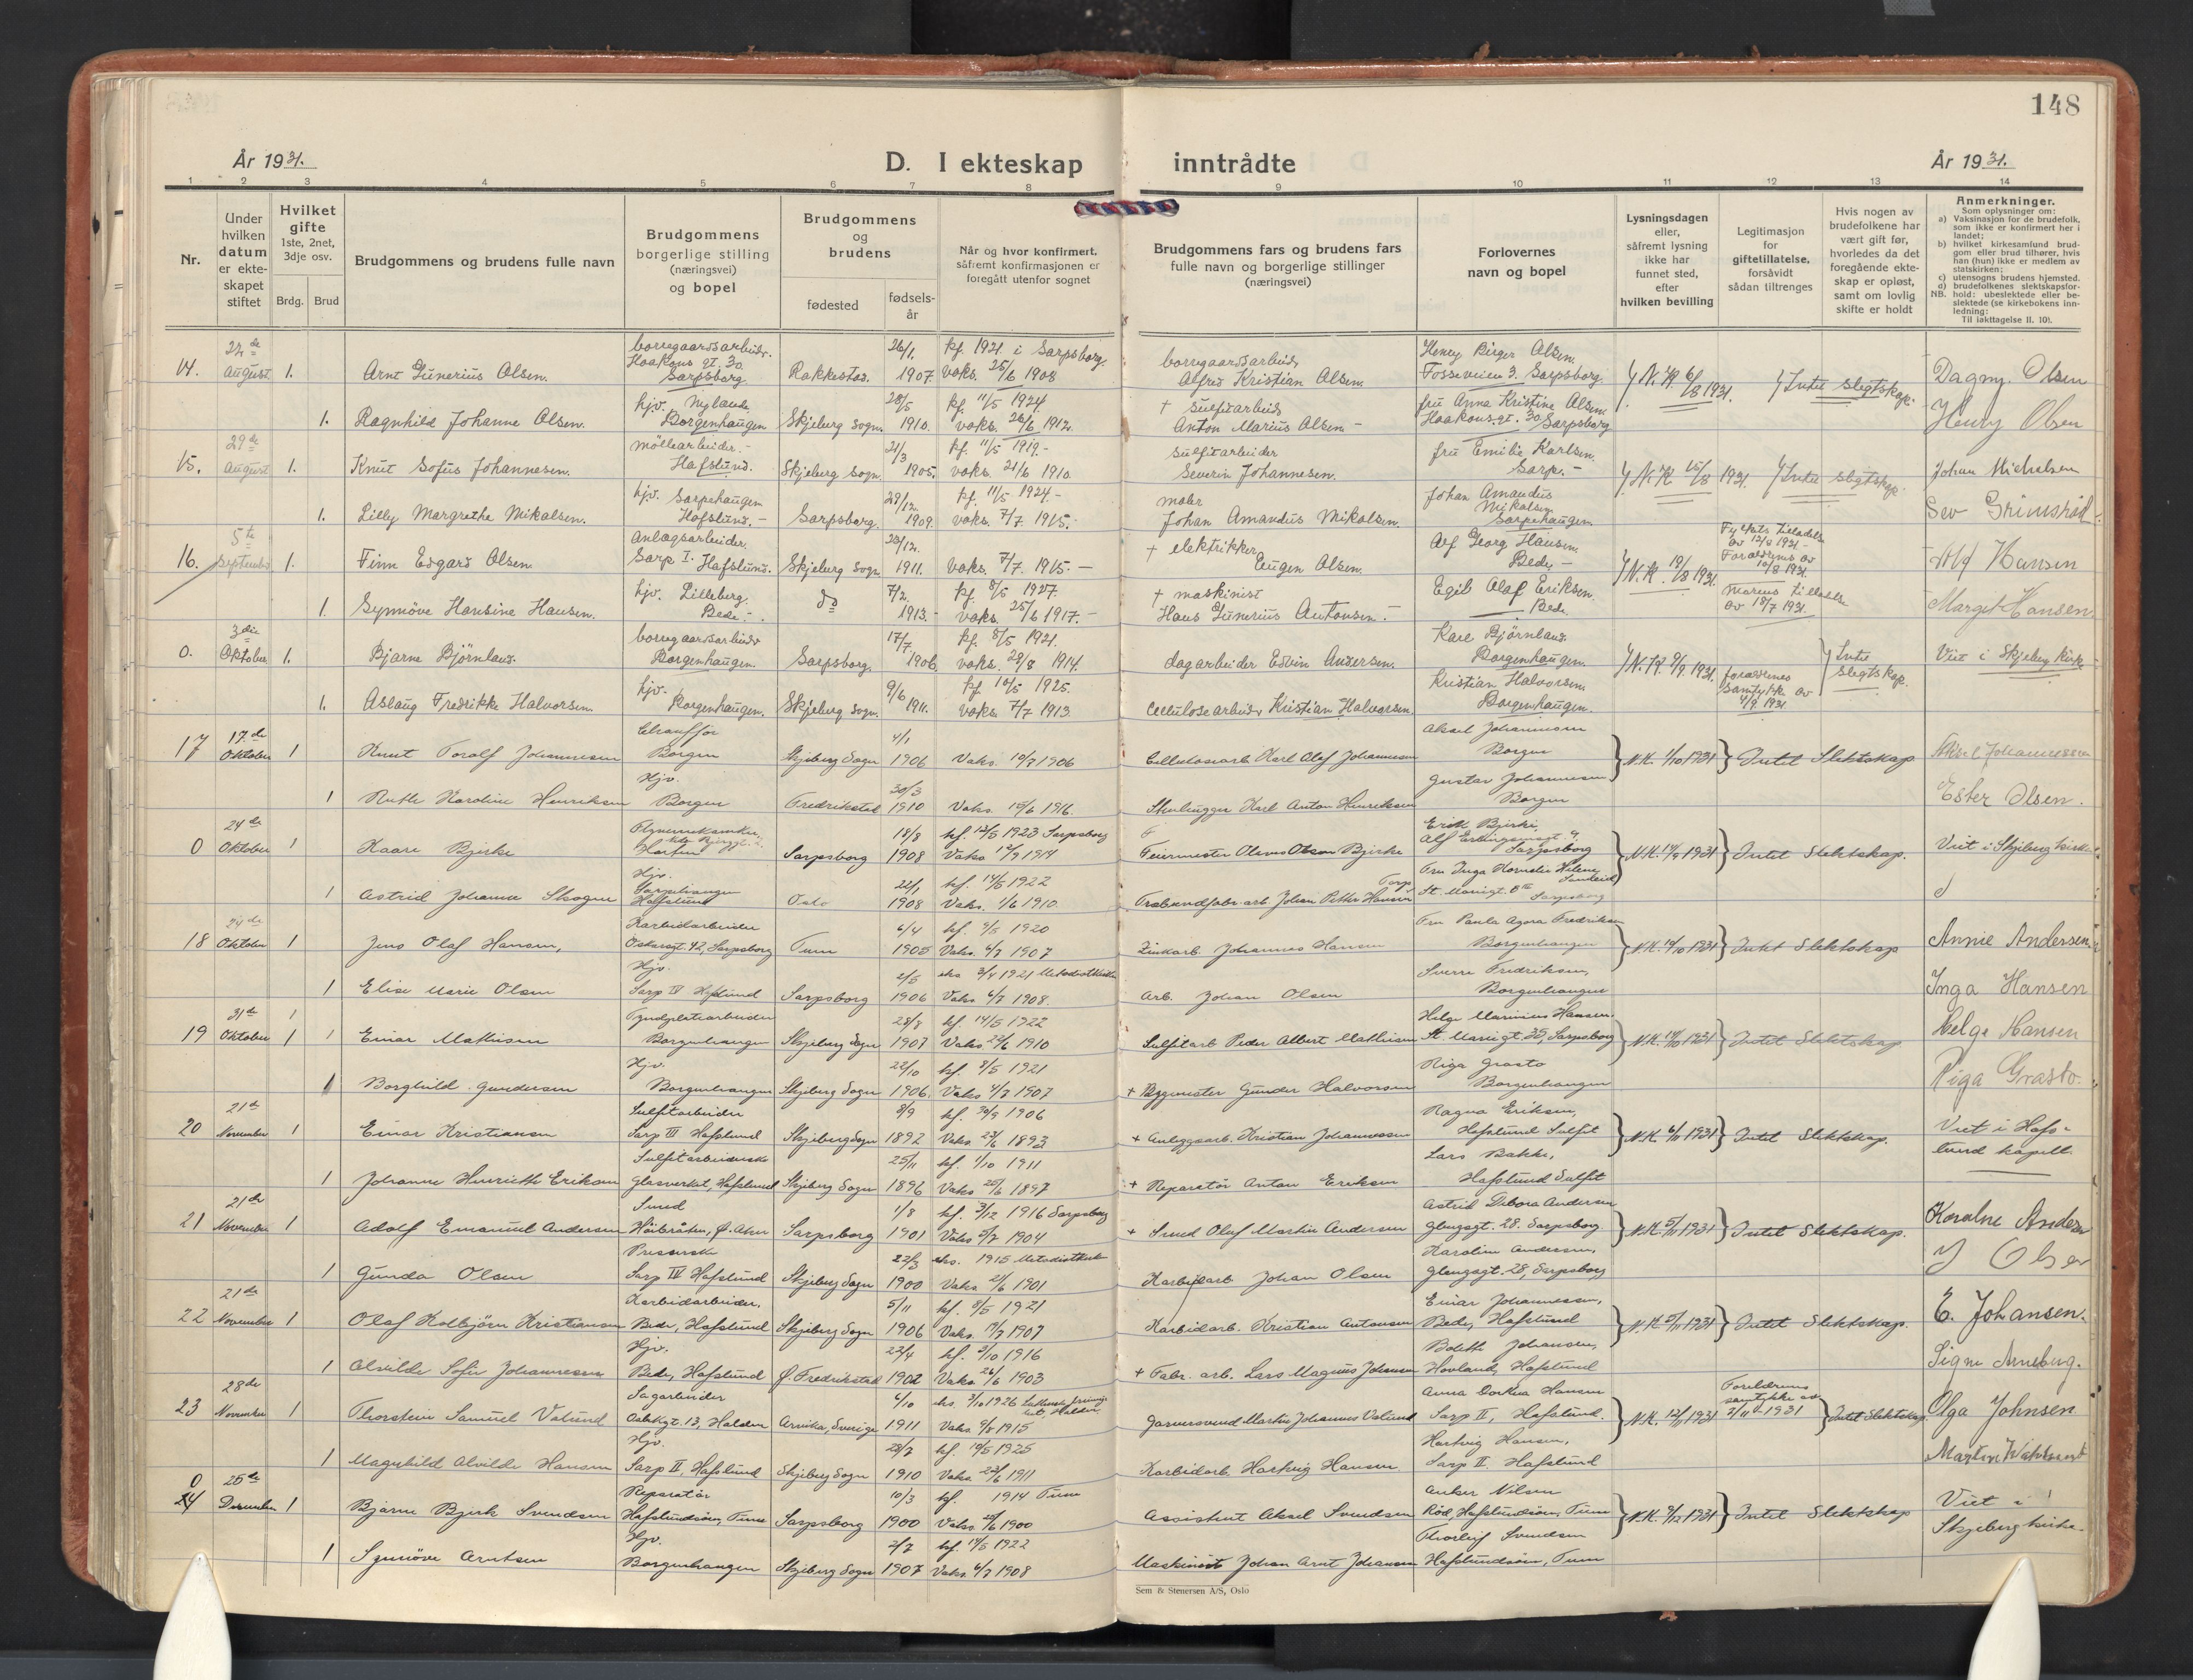 148
År 1931.
D. I ekteskap inntrådte
År 1931.
1 2 3 4 5 6 7 8 9 10 11 12 13 14
Nr.
Under hvilken datum er ekteskapet stiftet
Hvilket gifte 1ste, 2net, 3dje osv.
Brdg. Brud
Brudgommens og brudens fulle navn
Brudgommens borgerlige stilling (næringsvei) og bopel
Brudgommens og brudens
fødested
fødselsår
Når og hvor konfirmert, såfremt konfirmasjonen er foregått utenfor sognet
Brudgommens fars og brudens fars fulle navn og borgerlige stillinger (næringsvei)
Forlovernes navn og bopel
Lysningsdagen eller, såfremt lysning ikke har funnet sted, efter hvilken bevilling
Legitimasjon for giftetillatelse, forsåvidt sådan tiltrenges
Hvis nogen av brudefolkene har vært gift før, hvorledes da det foregående ekteskap er opløst, samt om lovlig skifte er holdt
Anmerkninger.
Som oplysninger om:
a) Vaksinasjon for de brudefolk, som ikke er konfirmert her i landet;
b) hvilket kirkesamfund brudgom eller brud tilhører, hvis han (hun) ikke er medlem av statskirken;
c) utensogns brudens hjemsted.
d) brudefolkenes slektskapsforhold: ubeslektede eller beslektede (se kirkebokens innledning:
NB. Til iakttagelse II. 10).
14. August 1. Arnt Gunerius Olsen. borregaardsarbeider. Haakons gt. 30 Sarpsborg Rakkestad. 26/1 1907. kf. 1921 i Sarpsborg. vaks. 25/6 1908 borregaardsarbeid. Alfred Kristian Olsen. Henry Birger Olsen. Fosseveien 3. Sarpsborg. N.K. 6/8 1931. Intet slegtskap. Dagny. Olsen
1. Ragnhild Johanne Olsen. hjv. Nylande Borgenhaugen Skjeberg sogn. 28/5 1910. kf. 11/5 1924. vaks. 26/6 1912. † sulfitarbeid. Anton Marius Olsen - fru Anna Kristine Olsen. Haakonsgt. 30 Sarpsborg Henry Olsen
15. 29de August 1. Knut Sofus Johannesen. möllearbeider. Hafslund. Skjeberg sogn. 21/3 1905. kf. 11/5 1919. vaks. 21/6 1910. sulfitarbeider Severin Johannesen. fru Emilie Karlsen. Sarp. N.K. 15/8 1931. Intet slegtskap. Johan Michelsen
1. Lilly Margrethe Mikalsen. hjv. Sarpehaugen Hafslund. Sarpsborg. 29/12 1909. kf. 11/5 1924. vaks. 7/7 1915. maler Johan Amandus Mikalsen. Johan Amandus Mikalsen Sarpehaugen
16. 5te September 1. Finn Edgard Olsen. Anlægsarbeider. Sarp I. Hafslund. Skjeberg sogn. 28/12. 1911. vaks. 7/7. 1915. † elektrikker Eugen Olsen. Alf Georg Hansen. Bede N.K. 19/8 1931. Alf Hansen
1. Synnöve Hansine Hansen. hjv. Lilleberg. Bede. do 7/2. 1913. kf. 8/5 1927. vaks. 25/6 1917. † maskinist Hans Gunerius Antonsen. Egil Olaf Eriksen. Bede Margit Hansen.
0. 3die Oktober. 1. Bjarne Björnland. borregaardsarbeider Borgenhaugen. Sarpsborg. 17/7. 1906. kf. 8/5 1921. vaks. 28/8 1914. dagarbeider Edvin Andersen. Kare Björnland. Borgenhaugen. N.K. 9/9. 1931. foreldrenes samtykke av 4/9 1931. Intet slegtskap. Viet i Skjeberg kirke
1. Aslaug Fredrikke Halvorsen. hjv. Borgenhaugen. Skjeberg sogn. 9/6 1911. kf. 10/5 1925. vaks. 7/7 1913. Cellulosearbeider Kristian Halvorsen. Kristian Halvorsen. Borgenhaugen.
17 17.de Oktober 1 Knut Toralf Johannesen Chauffør Borgen Skjeberg Sogn 4/1 1906 Vaks. 10/7 1906 Cellulosearb. Karl Olaf Johannesen Aksel Johannesen Borgen N.K. 1/10 1931 Intet Slektskap Aksel Johannessen
1 Ruth Karoline Henriksen Hjv. Borgen Fredrikstad 30/3 1910 Vaks. 15/6 1916. Stenhugger Karl Anton Henriksen Gustav Johannesen Borgen Ester Olsen.
0 24de Oktober 1 Kaare Bjerke Sarpsborg 18/8 1908 kf. 13/5 1923 Sarpsborg Vaks 12/9 1914 Feiermester Olaus Olsen Bjerke Erik Bjerke, Sarpsborg N.K. 14/9 1931 Intet Slektskap. Viet i Skjeberg kirke
1 Astrid Johanne Skogen Hjv. Sarpehaugen Hafslund Oslo 22/1 1908 kf. 14/5 1922 Vaks. 1/6 1910. Johan Petter Hansen St. Mariegt. Sarpsborg
18 24de Oktober 1 Jens Olaf Hansen, Karbidarbeider Oskarsgt. 42, Sarpsborg Tune 6/4 1905 kf. 9/5 1920 Vaks. 6/7 1907 Zinkarb. Johannes Hansen Fru Paula Agora Fredriksen Borgenhaugen N.K. 14/10 1931 Intet Slektskap Annie Andersen.
1 Elise Marie Olsen Hjv. Sarp IV Hafslund Sarpsborg 2/5 1906 Vaks 6/7 1908. Arb. Johan Olsen Sverre Fredriksen, Borgenhaugen Inga Hansen
19 31de Oktober 1 Einar Mathisen Borgenhaugen Skjeberg Sogn 28/8 1907 kf. 14/5 1922 Vaks 24/6 1910 Sulfitarb Peder Albert Mathisen Helge Marinius Hansen. St. Mariegt 35, Sarpsborg N.K. 14/10 1931 Intet Slektskap Helge Hansen
1 Borghild Gundersen Hjv. Borgenhaugen Skjeberg Sogn 22/10 1906. kf. 8/5 1921 Vaks 4/7 1907 + Bygmester Gunder Halvorsen Riga Grasto Borgenhaugen Riga Grasto.
20 21de November 1 Einar Kristiansen Sulfitarbeider Sarp III Hafslund Skjeberg Sogn 8/9 1892 kf. 30/9 1906 Vaks 27/6 1893 + Anleggsarb. Kristian Johannessen Ragna Eriksen, Hafslund Sulfit N.K. 6/11 1931 Intet Slektskap. Viet i Hafslund kapell.
1 Johanne Henriette Eriksen Sulfitarbeiderske Glasverket, Hafslund Skjeberg Sogn 25/11 1896 kf. 1/10 1911 Vaks 25/6 1897 + Reparatör Anton Eriksen Lars Bakke, Hafslund Sulfit
21 21de November 1 Adolf Emanuel Andersen Smed Höibråten, Ø. Aker Sarpsborg 1/8 1901 kf. 3/12 1916 Sarpsborg Vaks 5/7 1904 + Smed Oluf Martin Andersen Astrid Debora Andersen Glengsgt. 28. Sarpsborg. N.K. 5/11 1931 Intet Slektskap.
1 Gunda Olsen Presserske Sarp IV Hafslund Skjeberg Sogn 22/3 1900 1915 Metodistkirk Vaks. 2/6 1901 Karbidarb. Johan Olsen Karoline Andersen, Glengsgt. 28, Sarpsborg J Olsen
22 21de November 1 Olaf Kolbjörn Kristiansen Karbidarbeider, Bede, Hafslund Skjeberg Sogn 5/11 1906 kf. 8/5 1921 Vaks. 17/7 1907 Karbidarb. Kristian Antonsen Einar Johannessen, Bede, Hafslund N.K. 5/11 1931 Intet Slektskap. E. Johansen.
1 Alvilde Sofie Johannessen Hjv. Bede, Hafslund Ø. Fredrikstad 23/4 1902 kf. 2/10 1916 Vaks. 26/6 1903 + Fabr. arb. Lars Magnus Johansen Bodith Johansen, Hovland, Hafslund Signe Arneberg.
23 28de November 1 Thorstein Samuel Valund Sagarbeider Halden Arvika, Sverige 6/10 1911 3/10 1926 Halden. Vaks 9/8 1915 Garversvend Martin Johannes Valund Anna Dorthea Hansen Sarp II, Hafslund. N.K. 12/11 1931 Foreldrenes samtykke av 2/11-1931 Intet Slektskap Olga Johnsen
1 Magnhild Alvilde Hansen Hjv. Sarp II, Hafslund Skjeberg Sogn 28/7 1910 kf. 10/5 1925 Vaks 23/6 1911 Karbidarb. Hartvig Hansen Hartvig Hansen, Sarp II. Hafslund
0 24 25de Desember 1 Bjarne Bjerk Svendsen Reparatör Hafslundsöen, Tune Sarpsborg 10/3 1900 kf. 1914 Tune Vaks. 25/6 1900 Assistent Aksel Svendsen Anker Nilsen Röd, Hafslundsöen, Tune N.K. 9/12 1931 Intet Slektskap Viet i Skjeberg kirke.
1 Synnöve Arntsen Hjv. Borgenhaugen Skjeberg Sogn 2/7 1907 kf. 14/5 1922 Vaks. 6/7 1908 Maskinist Johan Arnt Johansen Thorleif Svendsen Hafslundsöen, Tune
Sem & Stenersen A/S, Oslo